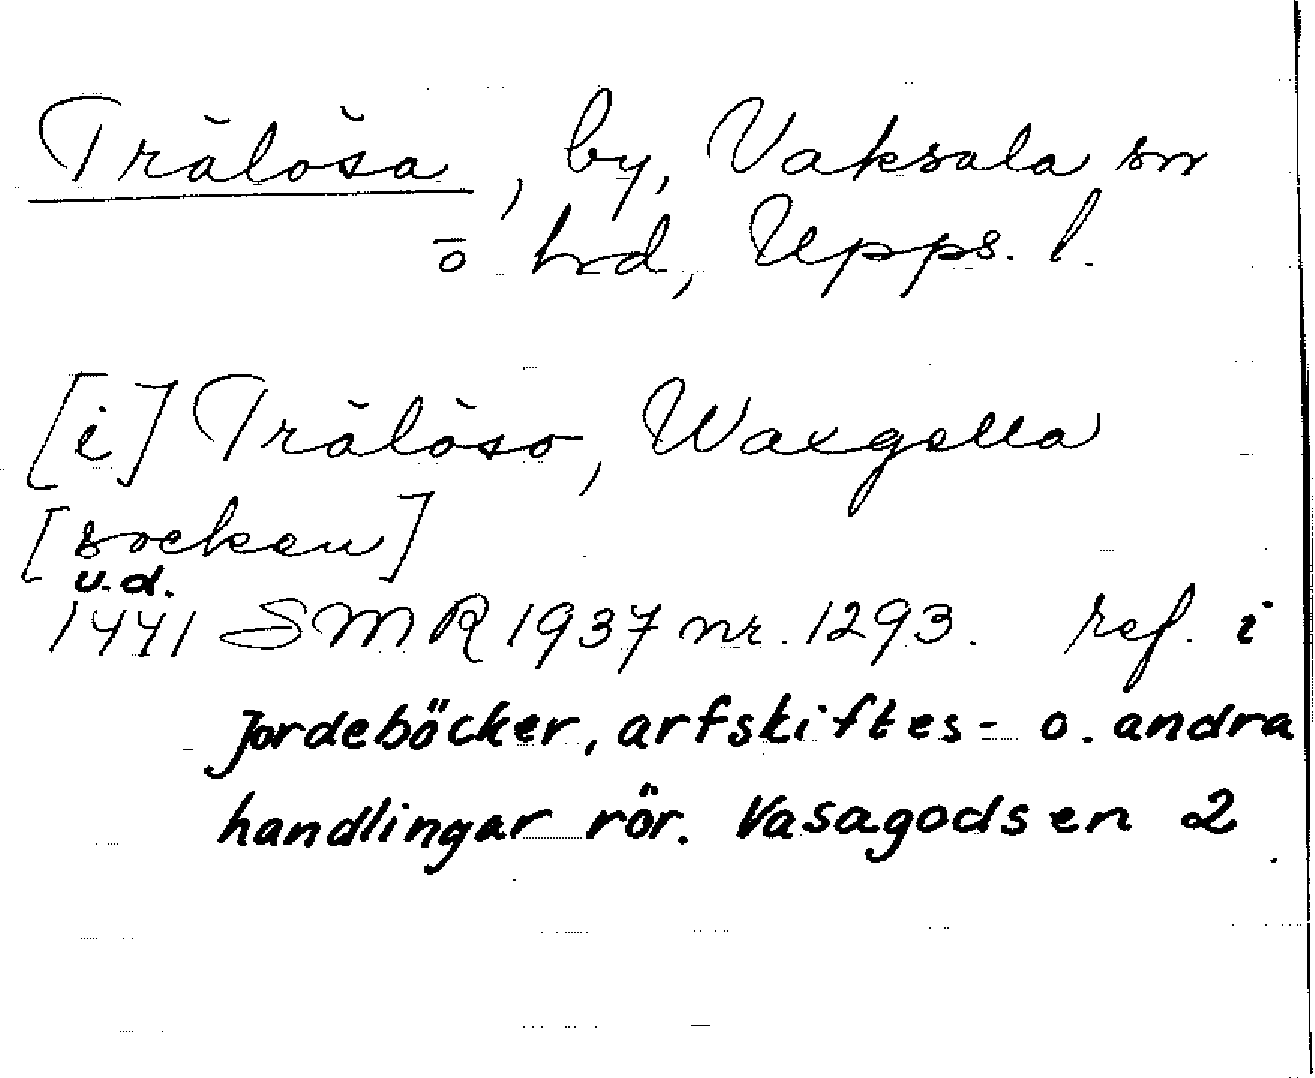 Trälösa, by, Vaksala sn
ö hd, Upps. l.
[i] Trälöso, Waxgella
[socken]
u.d.
1441 SMR 1937 nr. 1293. ref. i
Jordeböcker, arfskiftes- o. andra
handlingar rör. Vasagodsen 2